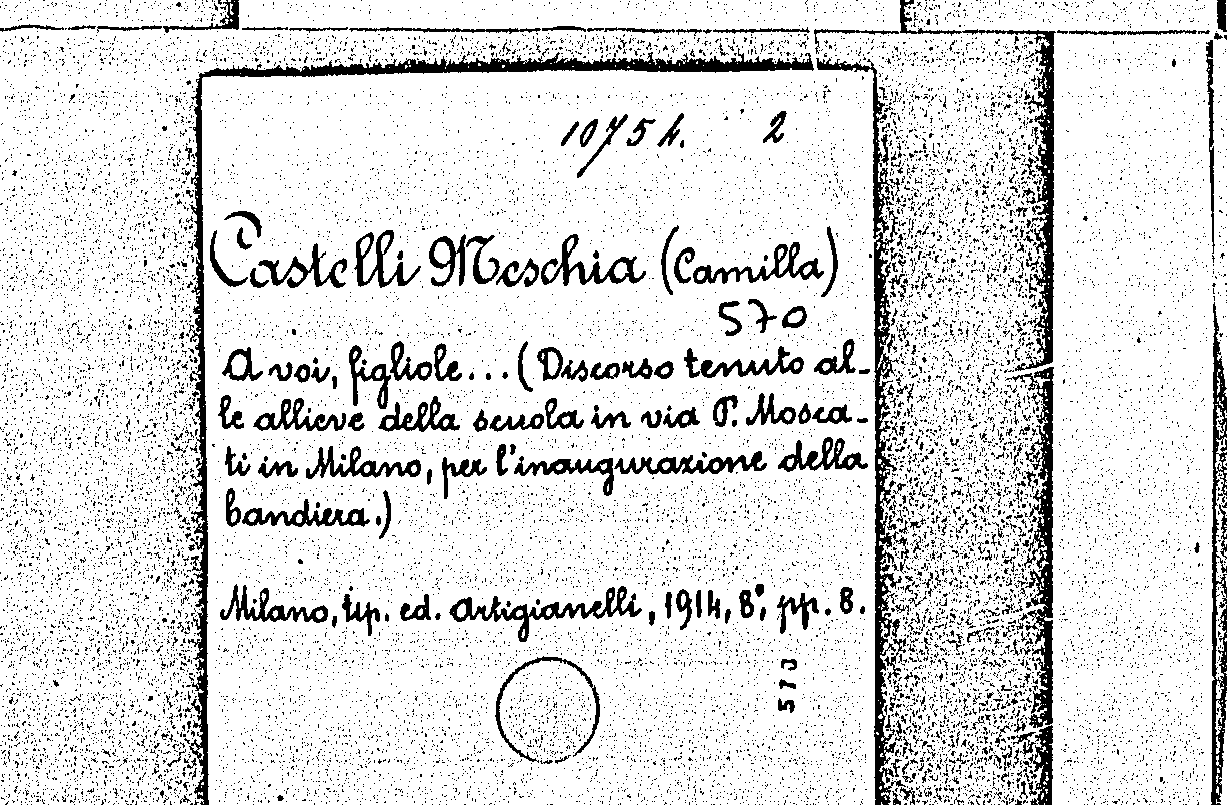 10754. 2
Castelli Meschia (Camilla)
570
A voi, figliole... (Discorso tenuto al-
le allieve della scuola in via P. Mosca-
ti in Milano, per l'inaugurazione della
bandiera.)
Milano, tip. ed. Artigianelli, 1914, 8°, pp. 8.
570